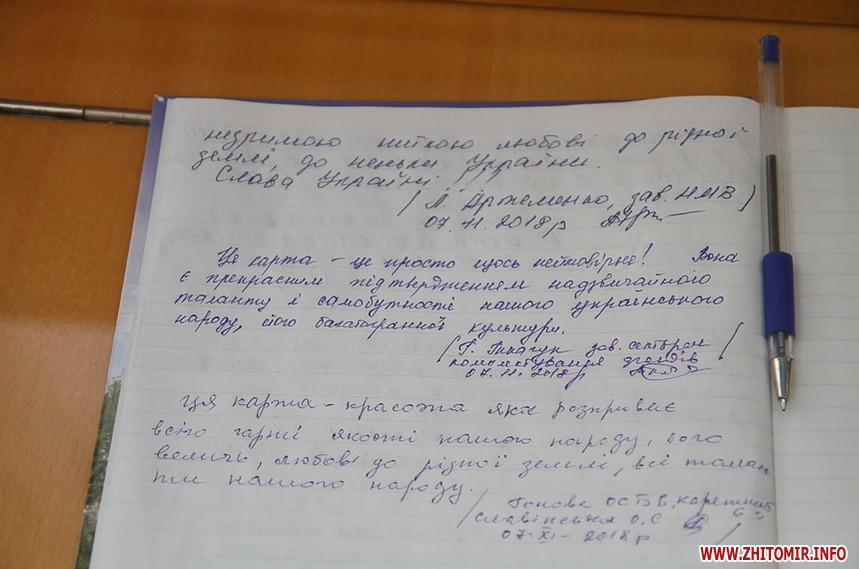 незримою ниткою любові до рідної
землі, до неньки України.
Слава Україні
/Л. Артеменко, зав. НМВ/
07.11.2018р
Це карта – це просто щось неймовірне! Вона
є прекрасним підтвердженням надзвичайного
таланту і самобутності нашого українського
народу, його багатогранної культури.
/Г. Ткачук зав. сектором
комплектування фондів
07.11.2018р
Ця карта – красота яка розкриває
всі гарні якості нашого народу, його
велич, любов до рідної землі, всі талан
ти нашого народу.
Славінська О.С
07-XI-2018р
WWW.ZHITOMIR.INFO